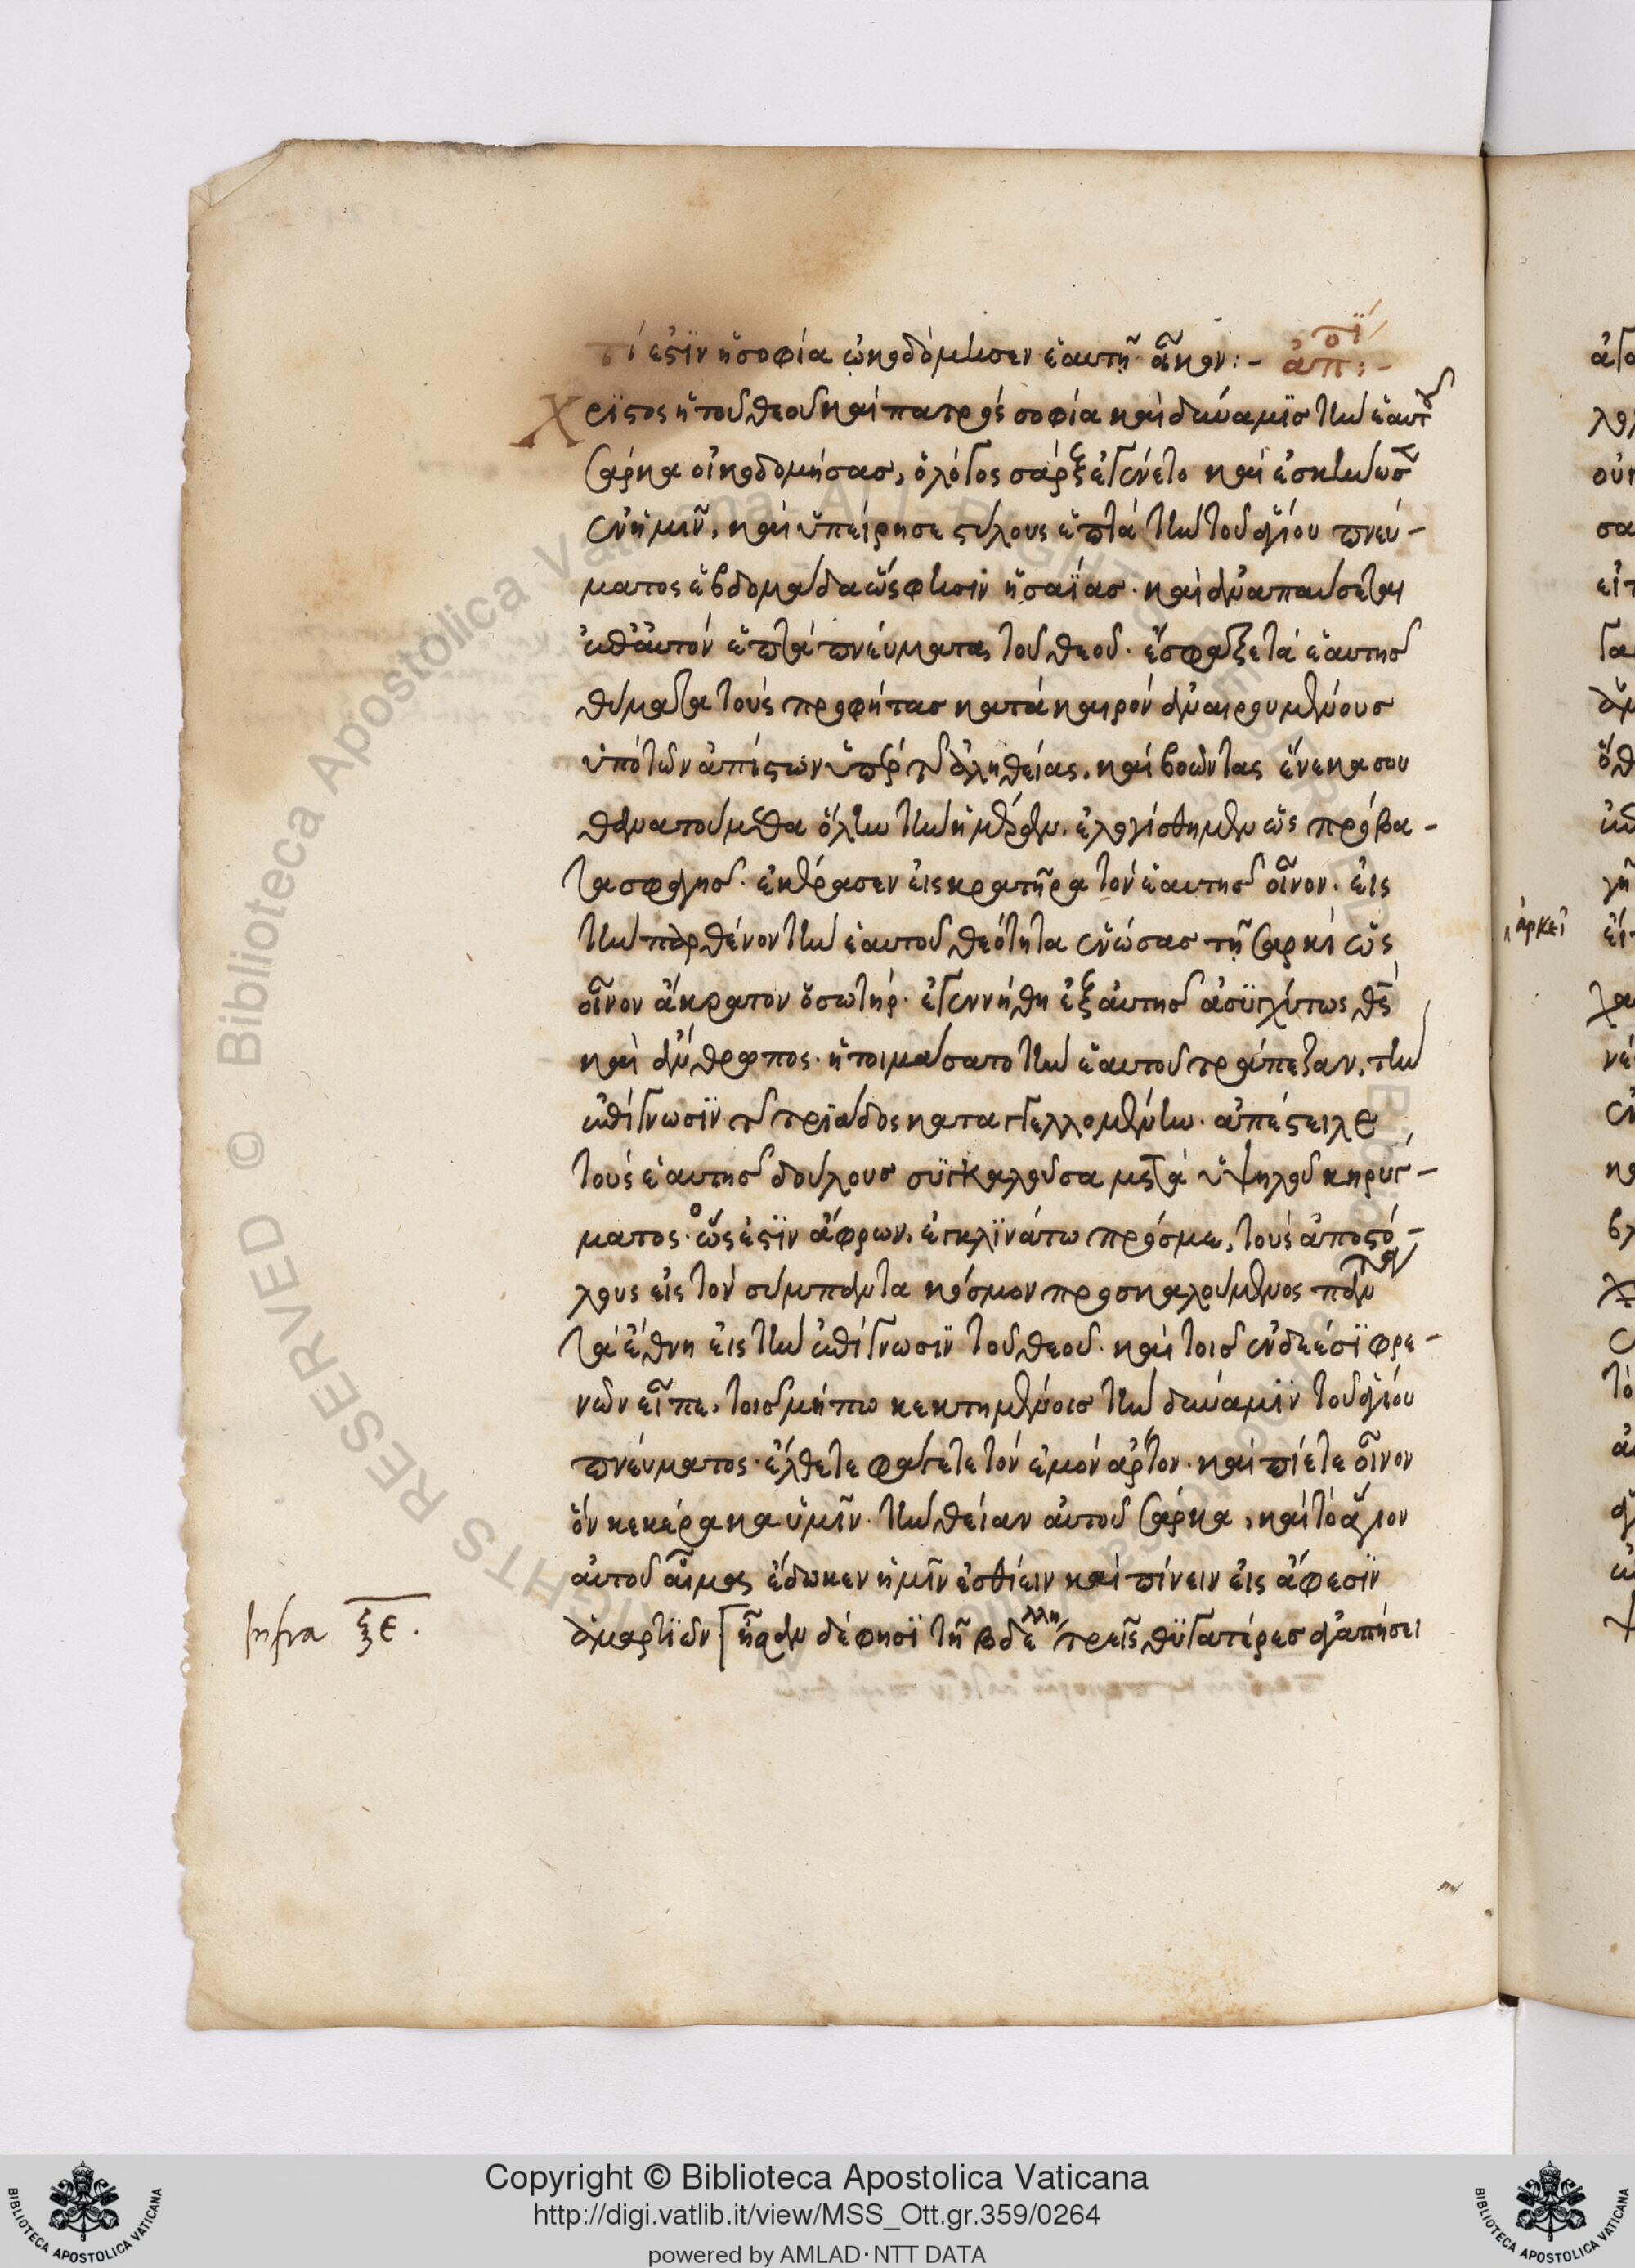 τί ἐστϊν ἡ σοφία ὠκοδόμησεν ἑαυτῇ οἶκον :- ἀπ :-
Χρϊστος ἡ τοῦ θεοῦ καὶ πατρὸς σοφία καὶ δύναμϊς τὴν ἑαυτοῦ
σάρκα οἰκοδομήσας, ὁ λόγος σὰρξ ἐγένετο καὶ ἐσκήνωσεν
ἐν ἡμῖν, καὶ ὑπείρησε στύλους ἑπτὰ τὴν τοῦ ἁγίου πνεύ-
ματος ἑβδομάδα ὥς φησϊν ἡσαΐας· καὶ ἀναπαύσεται
ἐπ' ἀυτὸν ἑπτὰ πνεύματα τοῦ θεοῦ· ἔσφαξε τὰ ἑαυτῆς
θύματα τοὺς προφήτας κατὰ καιρὸν ἀναιρουμένους
ὑπὸ τῶν ἀπίστων ὑπὲρ τῆς ἀληθείας, καὶ βοῶντας ἕνεκα σου
θανατούμεθα ὅλην τὴν ἡμέραν, ἐλογίσθημεν ὡς πρόβα-
τα σφαγῆς· ἐκέρασεν εἰς κρατῆρα τὸν ἑαυτῆς οἶνον· εἰς
τὴν πὰρθένον τὴν ἑαυτοῦ θεότητα ἑνώσας τῇ σαρκὶ ὡς
οἶνον ἄκρατον ὁ σωτήρ· ἐγεννήθη ἐξ ἀυτῆς ἀσϋγχύτως θς
καὶ ἄνθρωπος· ἡτοιμάσατο τὴν ἑαυτοῦ τράπεζαν, τὴν
ἐπίγνωσϊν τῆς τρϊάδος καταγγελλομένην· ἀπέστειλε
τοὺς ἑαυτῆς δούλους σϋγκαλοῦσα μετὰ ὑψηλοῦ κηρύγ-
ματος· ὅς ἐστϊν ἄφρων, ἐκκλϊνάτω πρός με, τοὺς ἀποστό-
λους εἰς τὸν σύμπαντα κόσμον προσκαλούμενος πάντα
τὰ ἔθνη εἰς τὴν ἐπίγνωσϊν τοῦ θεοῦ· καὶ τοῖς ἐνδεέσϊ φρε-
νῶν εἶπε, τοῖς μήπω κεκτημένοις τὴν δύναμϊν τοῦ ἁγίου
πνεύματος· ἔλθετε φάγετε τὸν ἐμὸν ἄρτον· καὶ πίετε οἶνον
ὃν κεκέρακα ὑμῖν· τὴν θείαν ἀυτοῦ σάρκα, καὶ τὸ ἅγιον
ἀυτοῦ αἷμα, ἔδωκεν ἡμῖν ἐσθίειν καὶ πίνειν εἰς ἄφεσϊν
ἁμαρτϊῶν [ ἦσαν δέ φησϊ τῇ βδέλλῃ τρεῖς θϋγατέρες ἀγαπήσει
Infra ξε.
ἀρκεῖ
Copyright © Biblioteca Apostolica Vaticana
http://digi.vatlib.it/view/MSS_Ott.gr.359/0264
powered by AMLAD·NTT DATA
BIBLIOTECA APOSTOLICA VATICANA
BIBLIOTECA APOSTOLICA VATICANA
RIGHTS RESERVED © Biblioteca Apostolica Vaticana